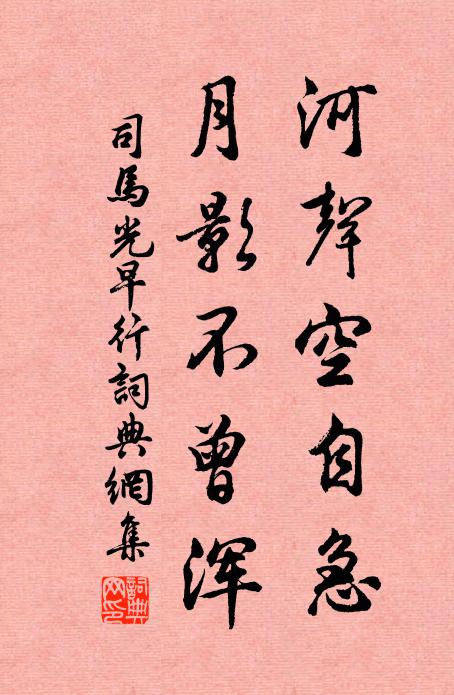 河聲空自急
月影不曾浑
司馬光早行詞典網集
詞典網印